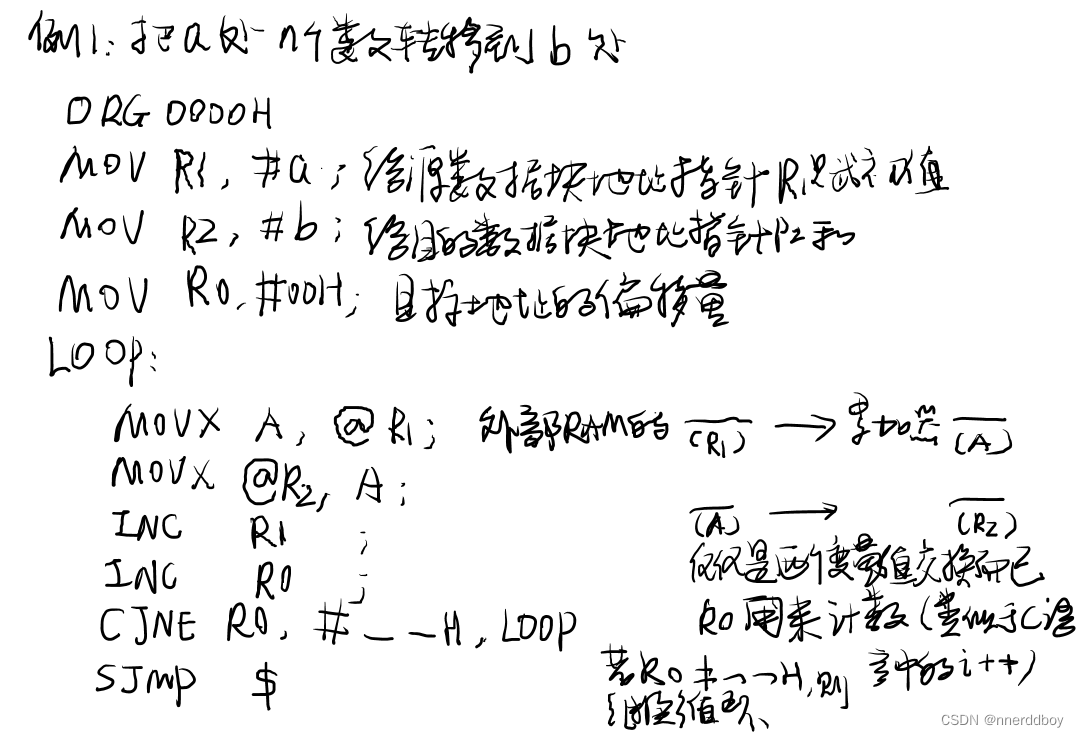 例1:把a处n个数转移到b处
ORG 0000H
MOV R1, #a ; 给源数据块地址指针R1赋初值
MOV R2, #b ; 给目的数据块地址指针R2
MOV R0, #00H; 目标地址的偏移量
LOOP:
MOVX A, @R1; 外部RAM的 (R1) → 累加器 (A)
MOVX @R2, A ; (A) → (R2)
INC R1 ; 仅仅是两个变量值交换而已
INC R0 ;
CJNE R0, #__H, LOOP R0用来计数(类似于C语
言中的i++)
SJMP $ 若R0≠__H,则
CSDN @nnerddboy